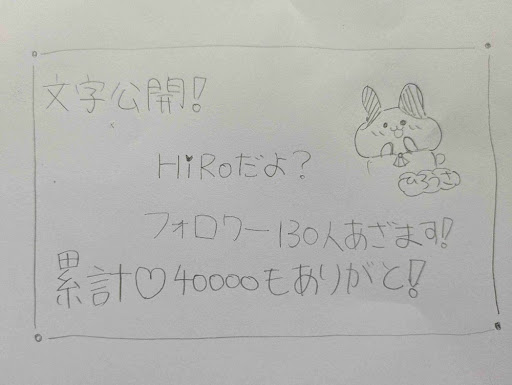 文字公開!
HiRoだよ?
ひろうさ
フォロワー130人あざます!
累計♡40000もありがと!